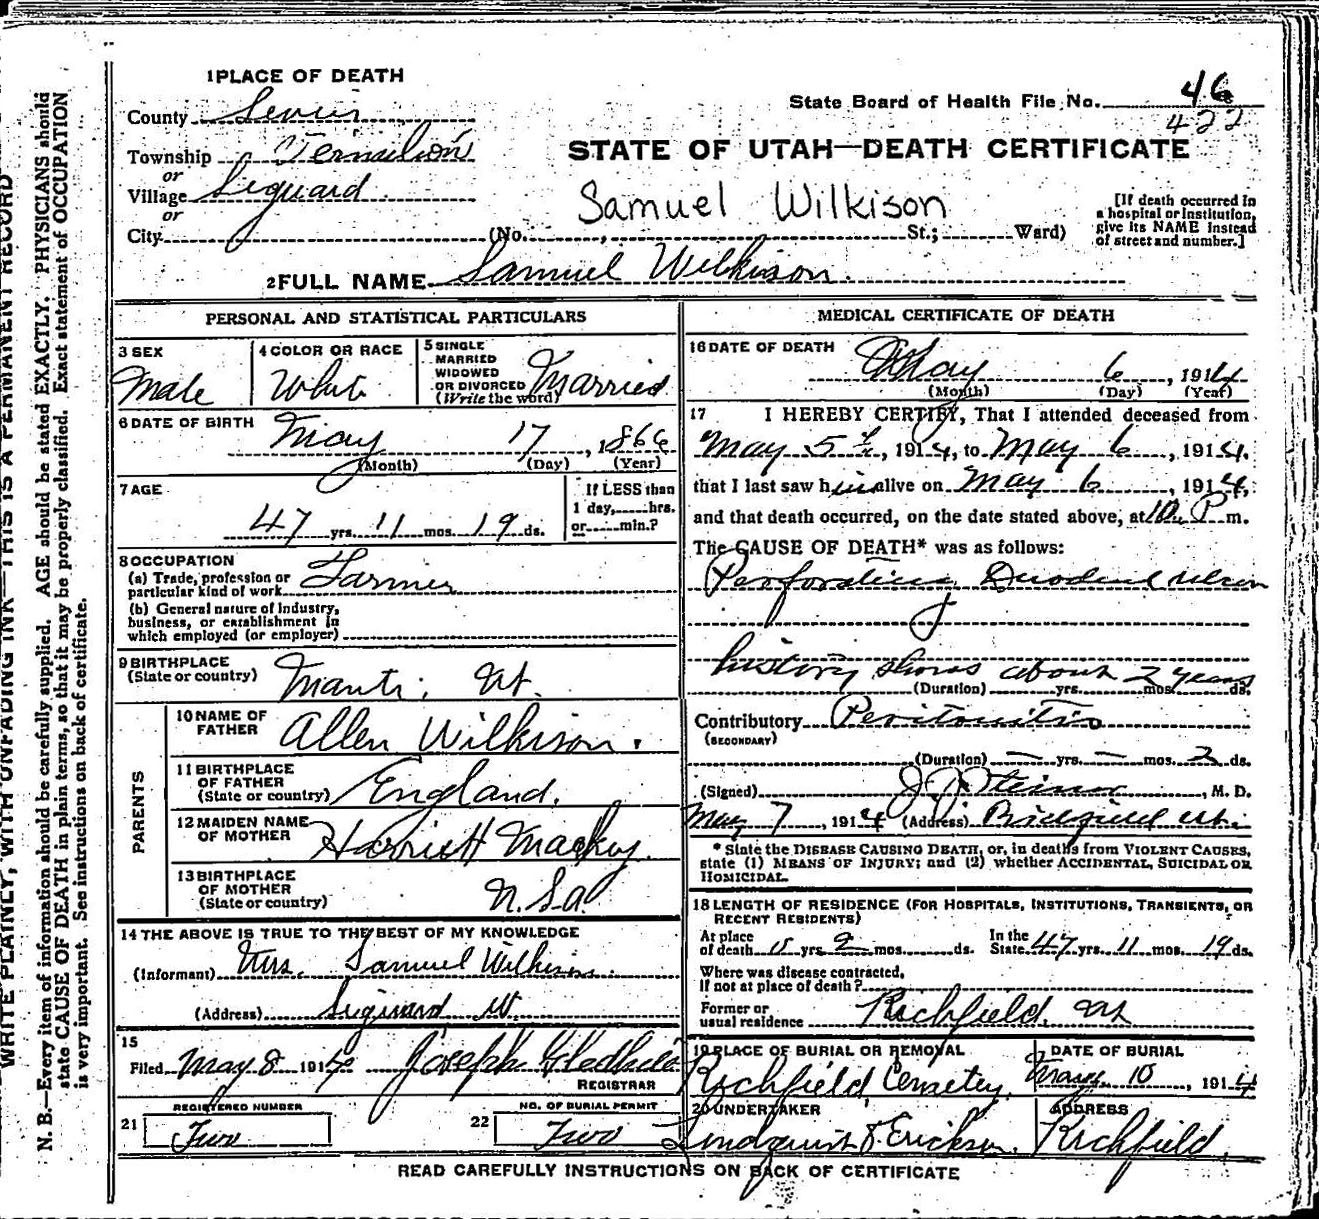 1 PLACE OF DEATH
County Sevier
State Board of Health File No. 46
422
Township Vermilion
or
Village Siguard
or
City
STATE OF UTAH—DEATH CERTIFICATE
Samuel Wilkison
(No. , St.; Ward)
[If death occurred in
a hospital or institution,
give its NAME instead
of street and number.]
2 FULL NAME Samuel Wilkison.
PERSONAL AND STATISTICAL PARTICULARS
3 SEX
Male
4 COLOR OR RACE
White
5 SINGLE
MARRIED
WIDOWED
OR DIVORCED
(Write the word)
Married
6 DATE OF BIRTH
May 17, 1866
(Month) (Day) (Year)
7 AGE
47 yrs. 11 mos. 19 ds.
If LESS than
1 day, hrs.
or min.?
8 OCCUPATION
(a) Trade, profession or
particular kind of work Farmer
(b) General nature of industry,
business, or establishment in
which employed (or employer)
9 BIRTHPLACE
(State or country) Manti, Ut.
PARENTS
10 NAME OF
FATHER Allen Wilkison.
11 BIRTHPLACE
OF FATHER
(State or country) England.
12 MAIDEN NAME
OF MOTHER Harriett Mackey.
13 BIRTHPLACE
OF MOTHER
(State or country)
14 THE ABOVE IS TRUE TO THE BEST OF MY KNOWLEDGE
(Informant) Mrs. Samuel Wilkison.
(Address) Sigurd Ut.
15
Filed May 8 1914 Joseph
REGISTRAR
21 REGISTERED NUMBER
Two
22 NO. OF BURIAL PERMIT
Two
MEDICAL CERTIFICATE OF DEATH
16 DATE OF DEATH
May 6, 1914
(Month) (Day) (Year)
17 I HEREBY CERTIFY, That I attended deceased from
May 5, 1914, to May 6, 1914.
that I last saw him alive on May 6, 1914,
and that death occurred, on the date stated above, at 10 P m.
The CAUSE OF DEATH* was as follows:
Perforating Duodenal ulcer
history shows about 2 years
(Duration) yrs. mos. ds.
Contributory Peritonitis
(SECONDARY)
(Duration) — yrs. — mos. 2 ds.
(Signed) J. J. Steiner, M. D.
May 7, 1914 (Address) Ut.
* State the DISEASE CAUSING DEATH, or, in deaths from VIOLENT CAUSES,
state (1) MEANS OF INJURY; and (2) whether ACCIDENTAL, SUICIDAL OR
HOMICIDAL.
18 LENGTH OF RESIDENCE (FOR HOSPITALS, INSTITUTIONS, TRANSIENTS, OR
RECENT RESIDENTS)
At place
of death 15 yrs. 9 mos. ds.
In the
State 47 yrs. 11 mos. 19 ds.
Where was disease contracted,
if not at place of death?
Former or
usual residence Richfield, Ut
19 PLACE OF BURIAL OR REMOVAL
Richfield, Cemetey.
DATE OF BURIAL
10, 1914
20 UNDERTAKER
Lindquist & Erickson.
ADDRESS
Richfield.
READ CAREFULLY INSTRUCTIONS ON BACK OF CERTIFICATE
WRITE PLAINLY, WITH UNFADING INK—THIS IS A PERMANENT RECORD
N. B.—Every item of information should be carefully supplied. AGE should be stated EXACTLY. PHYSICIANS should
state CAUSE OF DEATH in plain terms, so that it may be properly classified. Exact statement of OCCUPATION
is very important. See instructions on back of certificate.